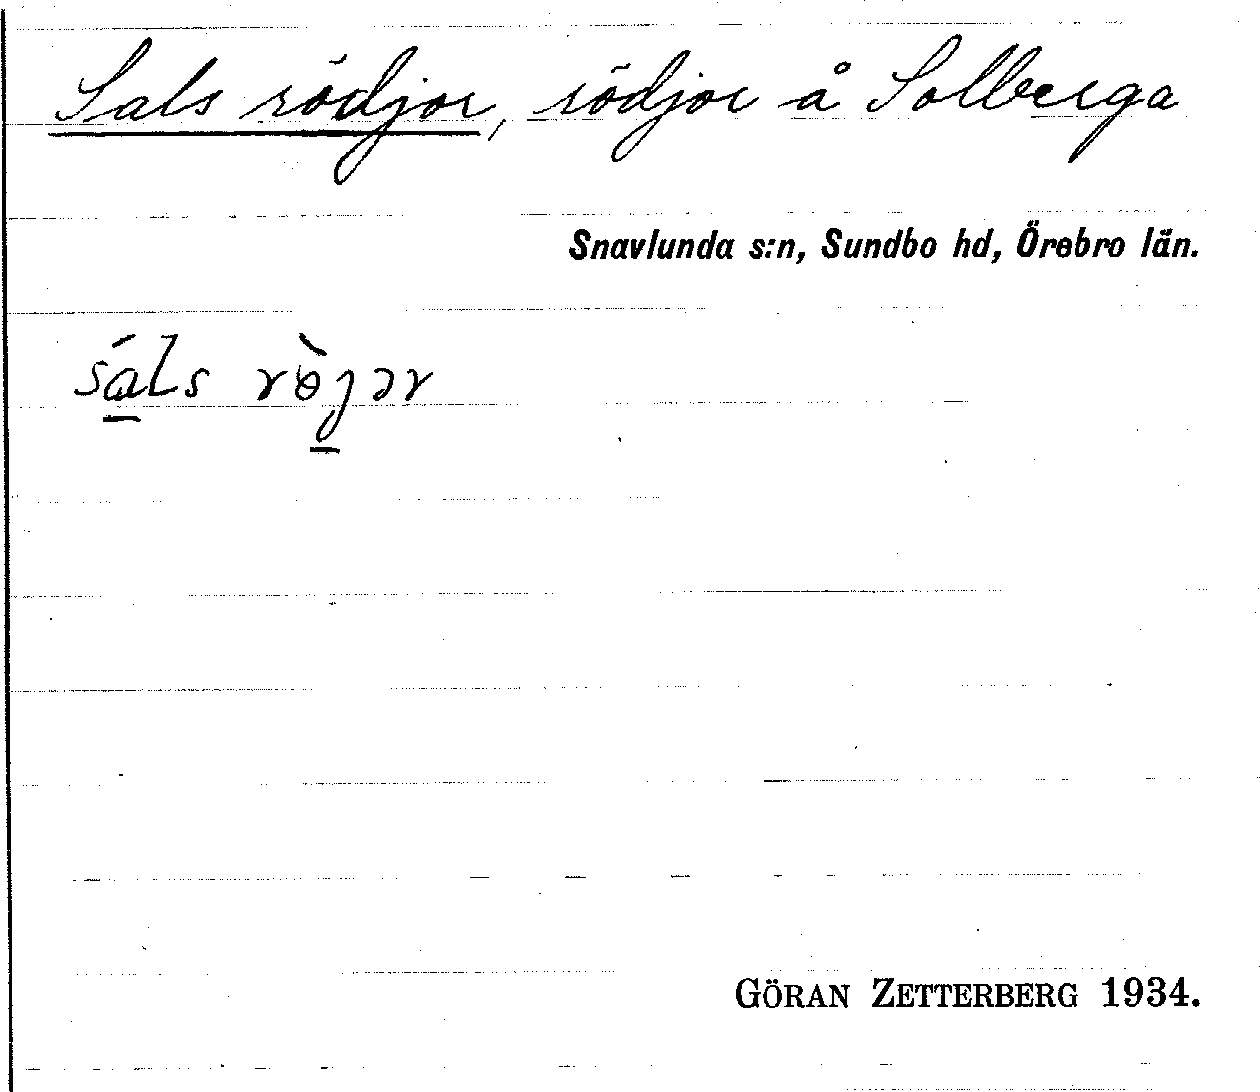 Sals rödjor, rödjor å Solberga
Snavlunda s:n, Sundbo hd, Örebro län.
sá̱ls rɵ̀ȷ̱ər
GÖRAN ZETTERBERG 1934.